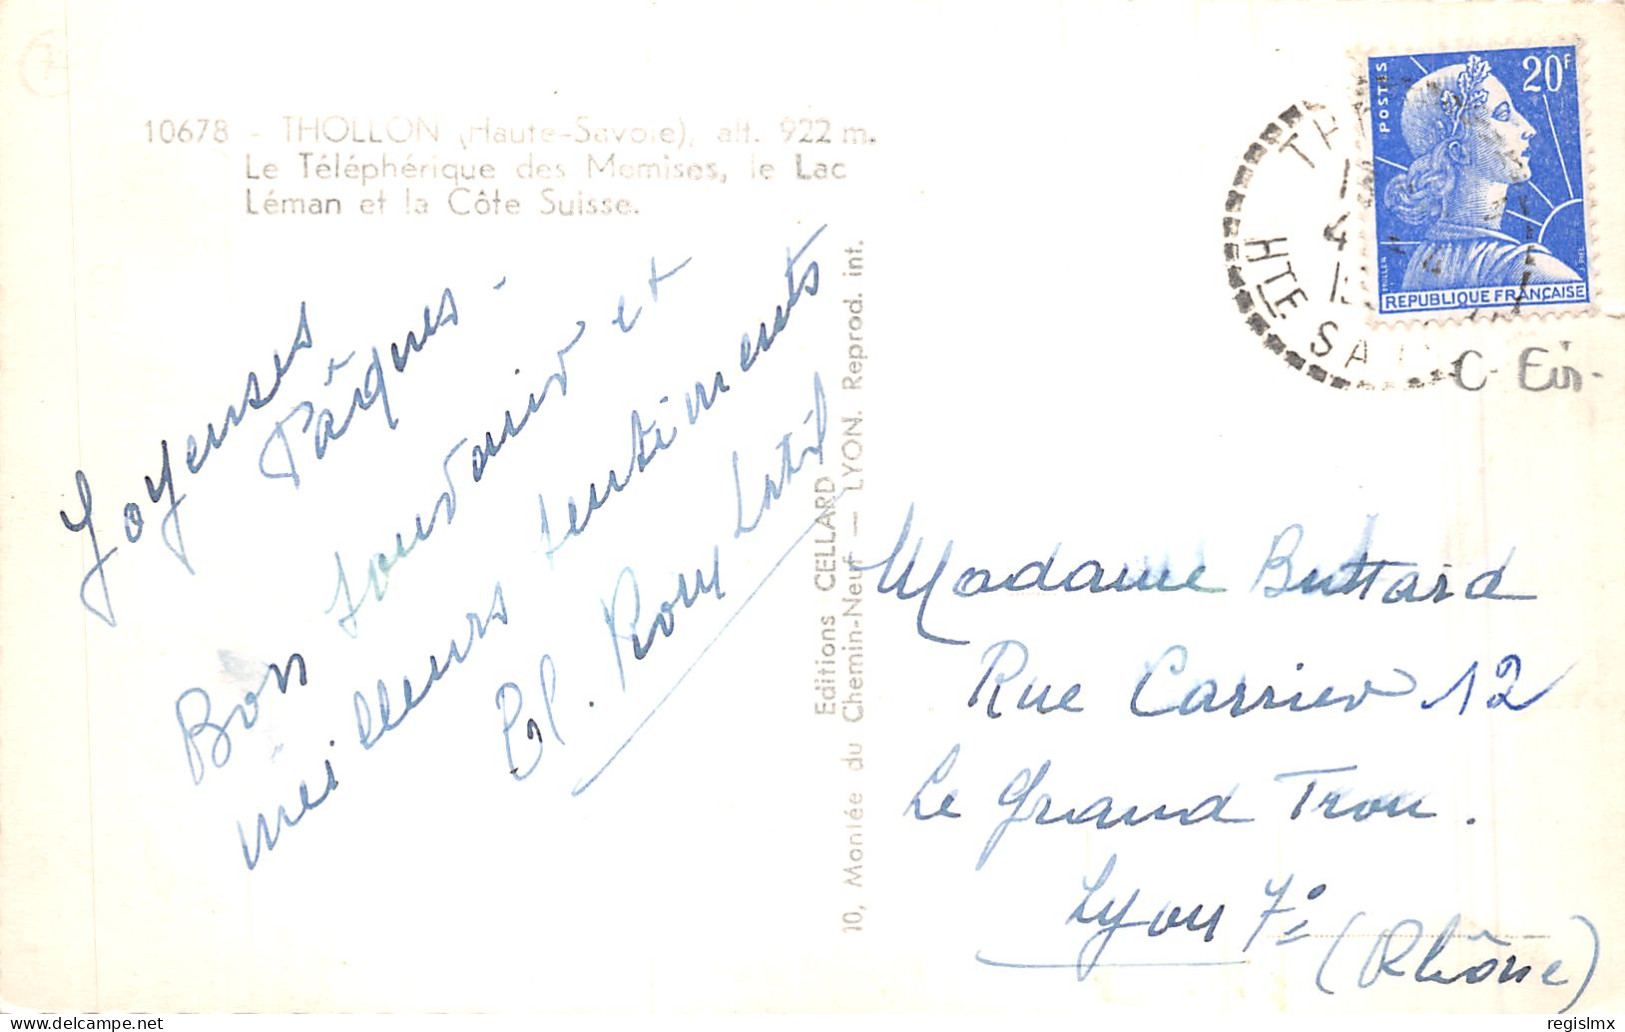 10678 - THOLLON (Haute-Savoie), alt. 922 m.
Le Téléphérique des Memises, le Lac
Léman et la Côte Suisse.
Joyeuses
Pâques -
Bon souvenir et
meilleurs sentiments
El. Roux Latil
Editions CELLARD
10, Montée du Chemin-Neuf — LYON. Reprod. int.
POSTES
20F
REPUBLIQUE FRANÇAISE
HTE SA
Madame Buttard
Rue Carrier 12
Le Grand Trou.
Lyon 7è
(Rhône)
delcampe.net
regislmx